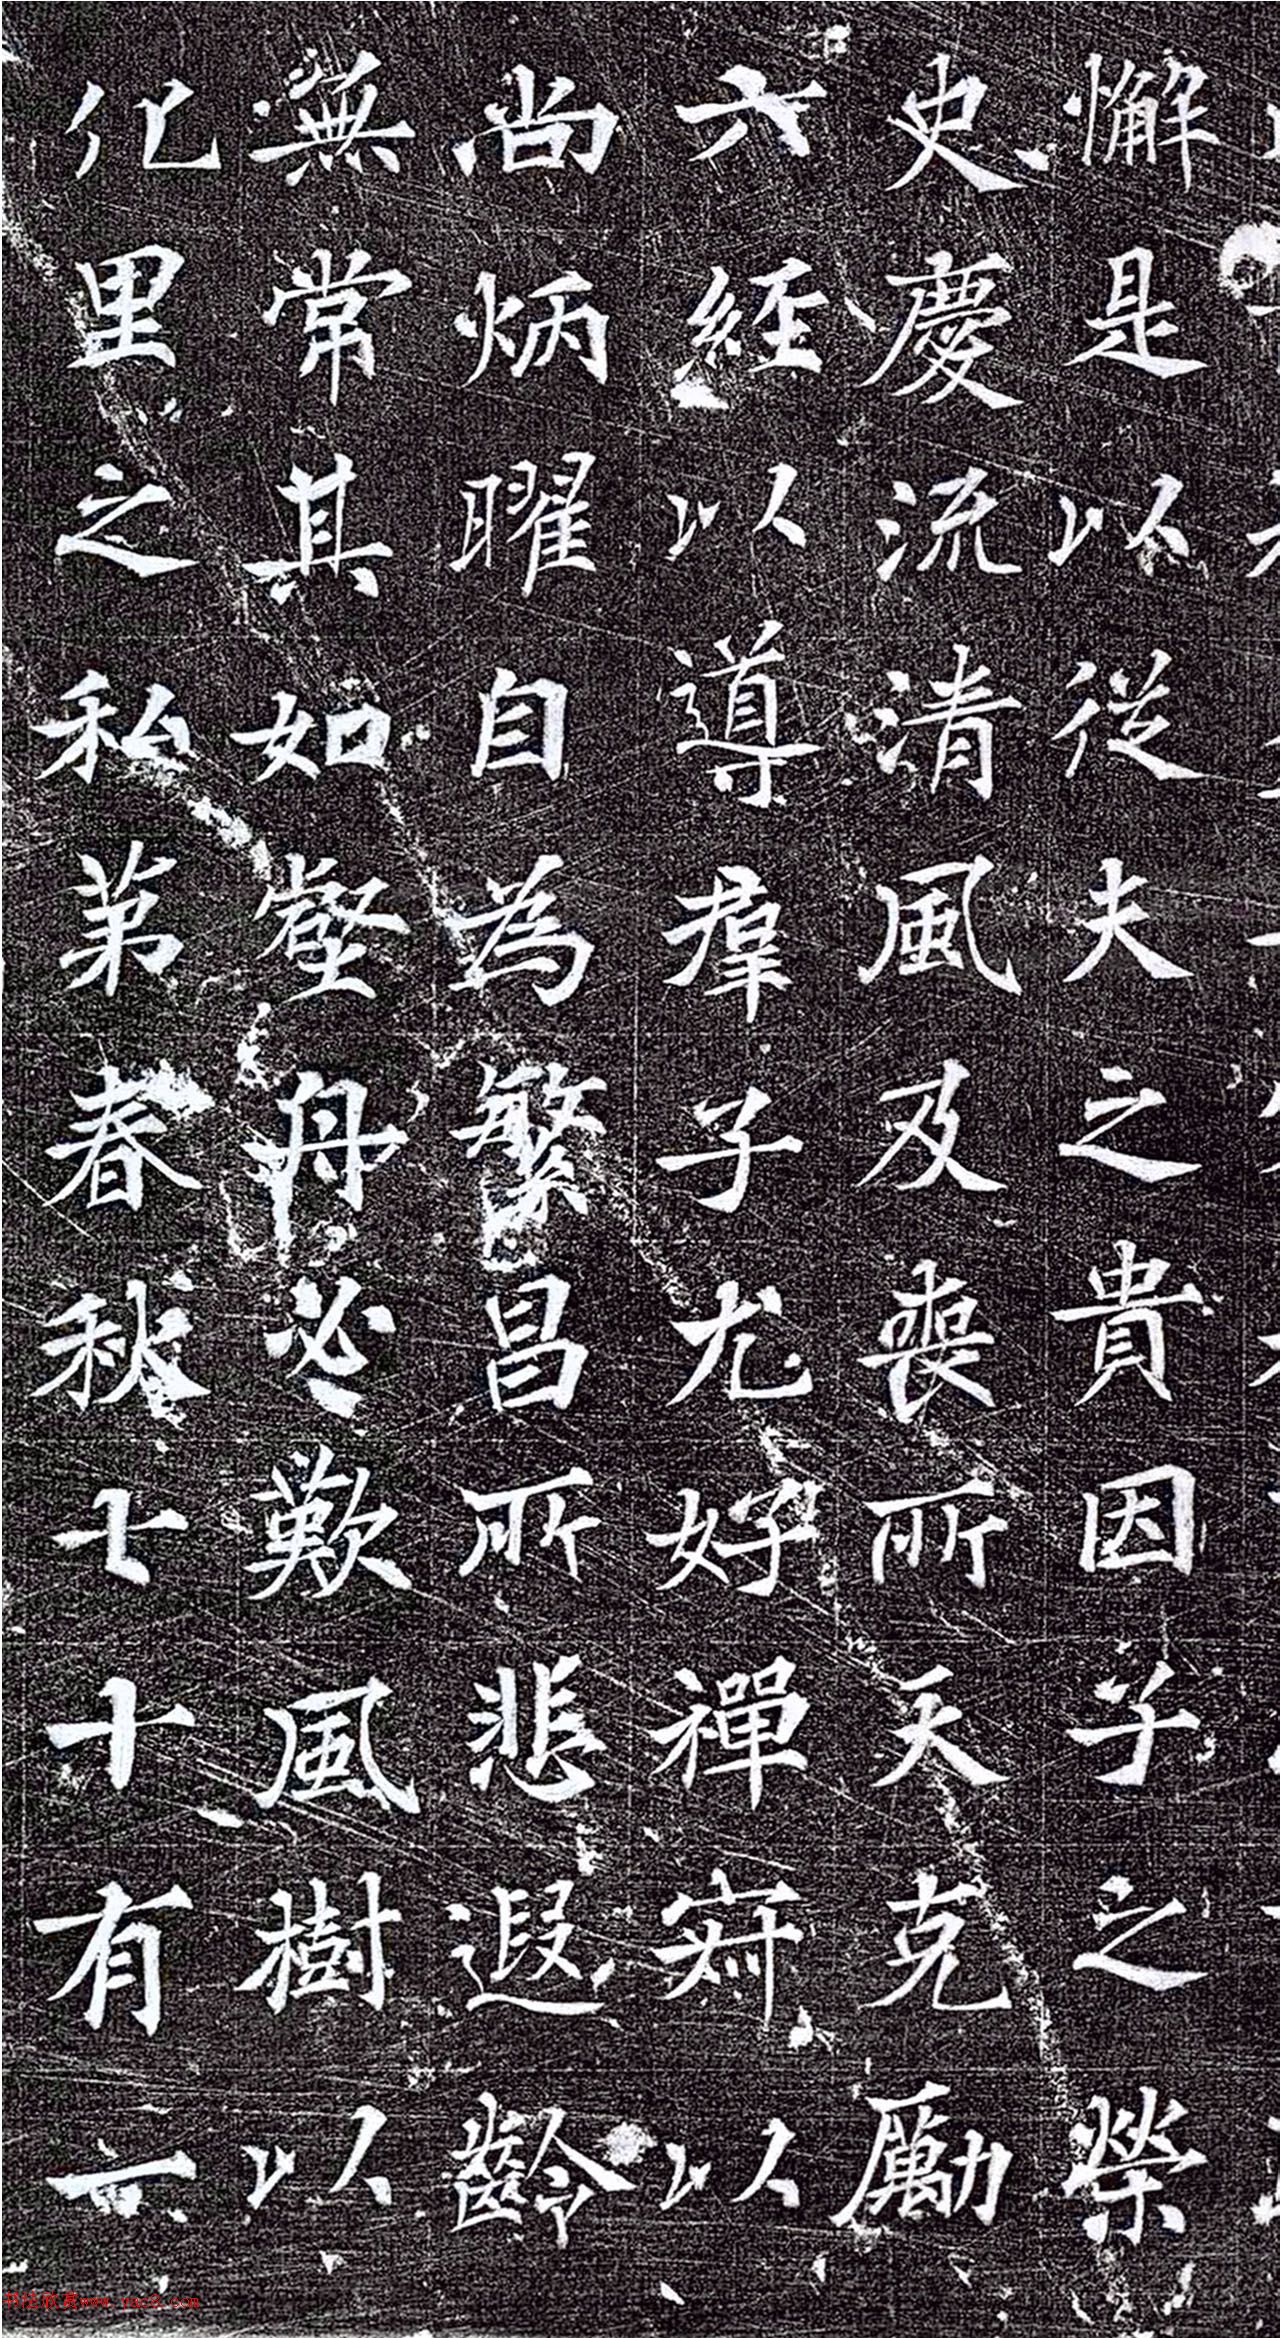 懈是以從夫之貴因子之榮
史慶流清風及喪所天克勵
六經以導羣子尤好禪寂以
尚炳曜自為繁昌所悲遐齡
無常其如壑舟必歎風樹以
化里之私第春秋七十有一